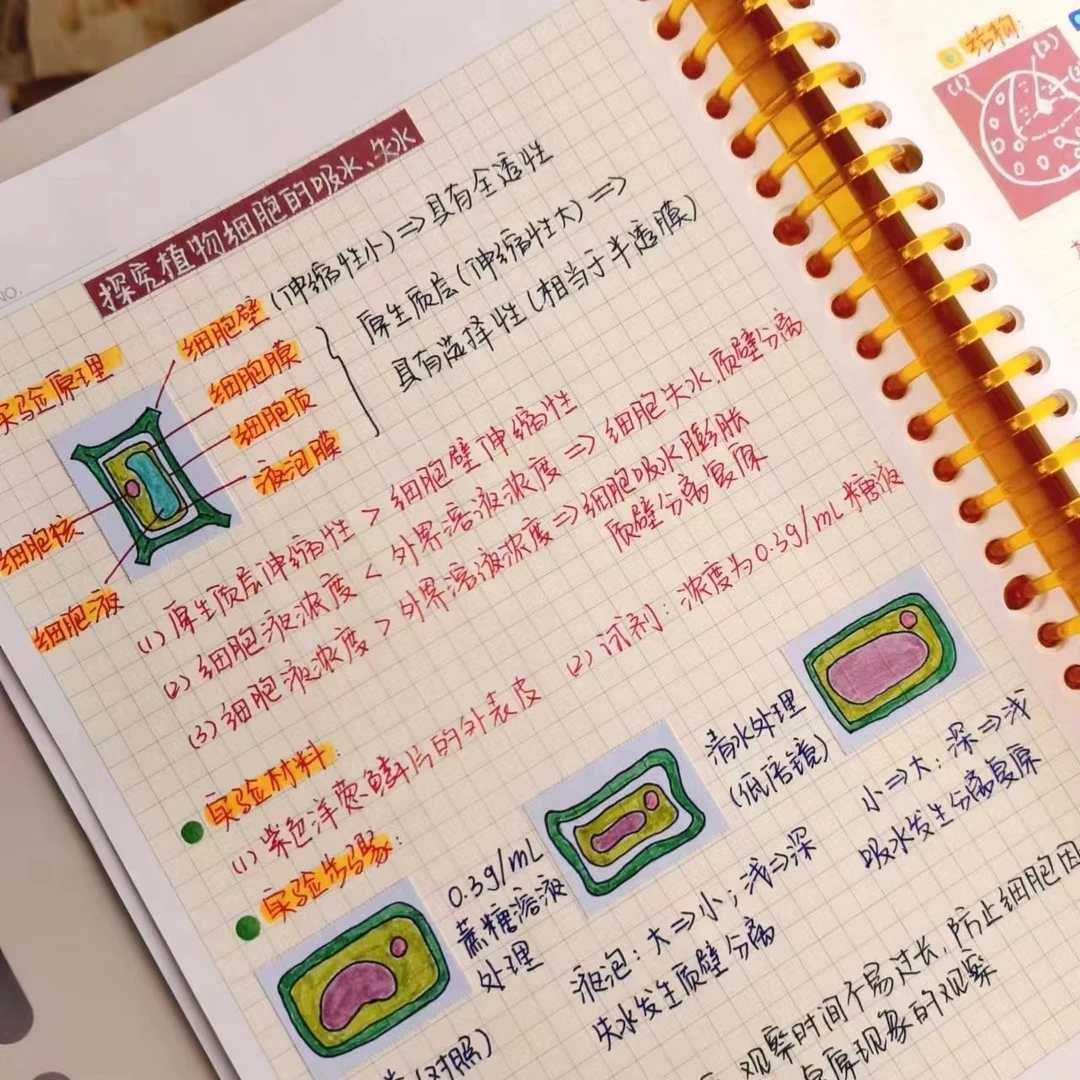 NO.
探究植物细胞的吸水、失水
实验原理
细胞壁(伸缩性小)=>具有全透性
细胞膜
细胞质
液泡膜
原生质层(伸缩性大)=>
具有选择性(相当于半透膜)
细胞核
细胞液
(1)原生质层伸缩性>细胞壁伸缩性
(2)细胞液浓度<外界溶液浓度=>细胞失水,质壁分离
(3)细胞液浓度>外界溶液浓度=>细胞吸水膨胀
质壁分离复原
实验材料:
(1)紫色洋葱鳞片的外表皮 (2)试剂:浓度为0.3g/mL糖液
实验步骤:
0.3g/mL
蔗糖溶液
处理
清水处理
(低倍镜)
液泡:大=>小;浅=>深
失水发生质壁分离
小=>大;深=>浅
吸水发生分离复原
(对照)
观察时间不易过长,防止细胞因
原现象的观察
结构:
(1)
(2)